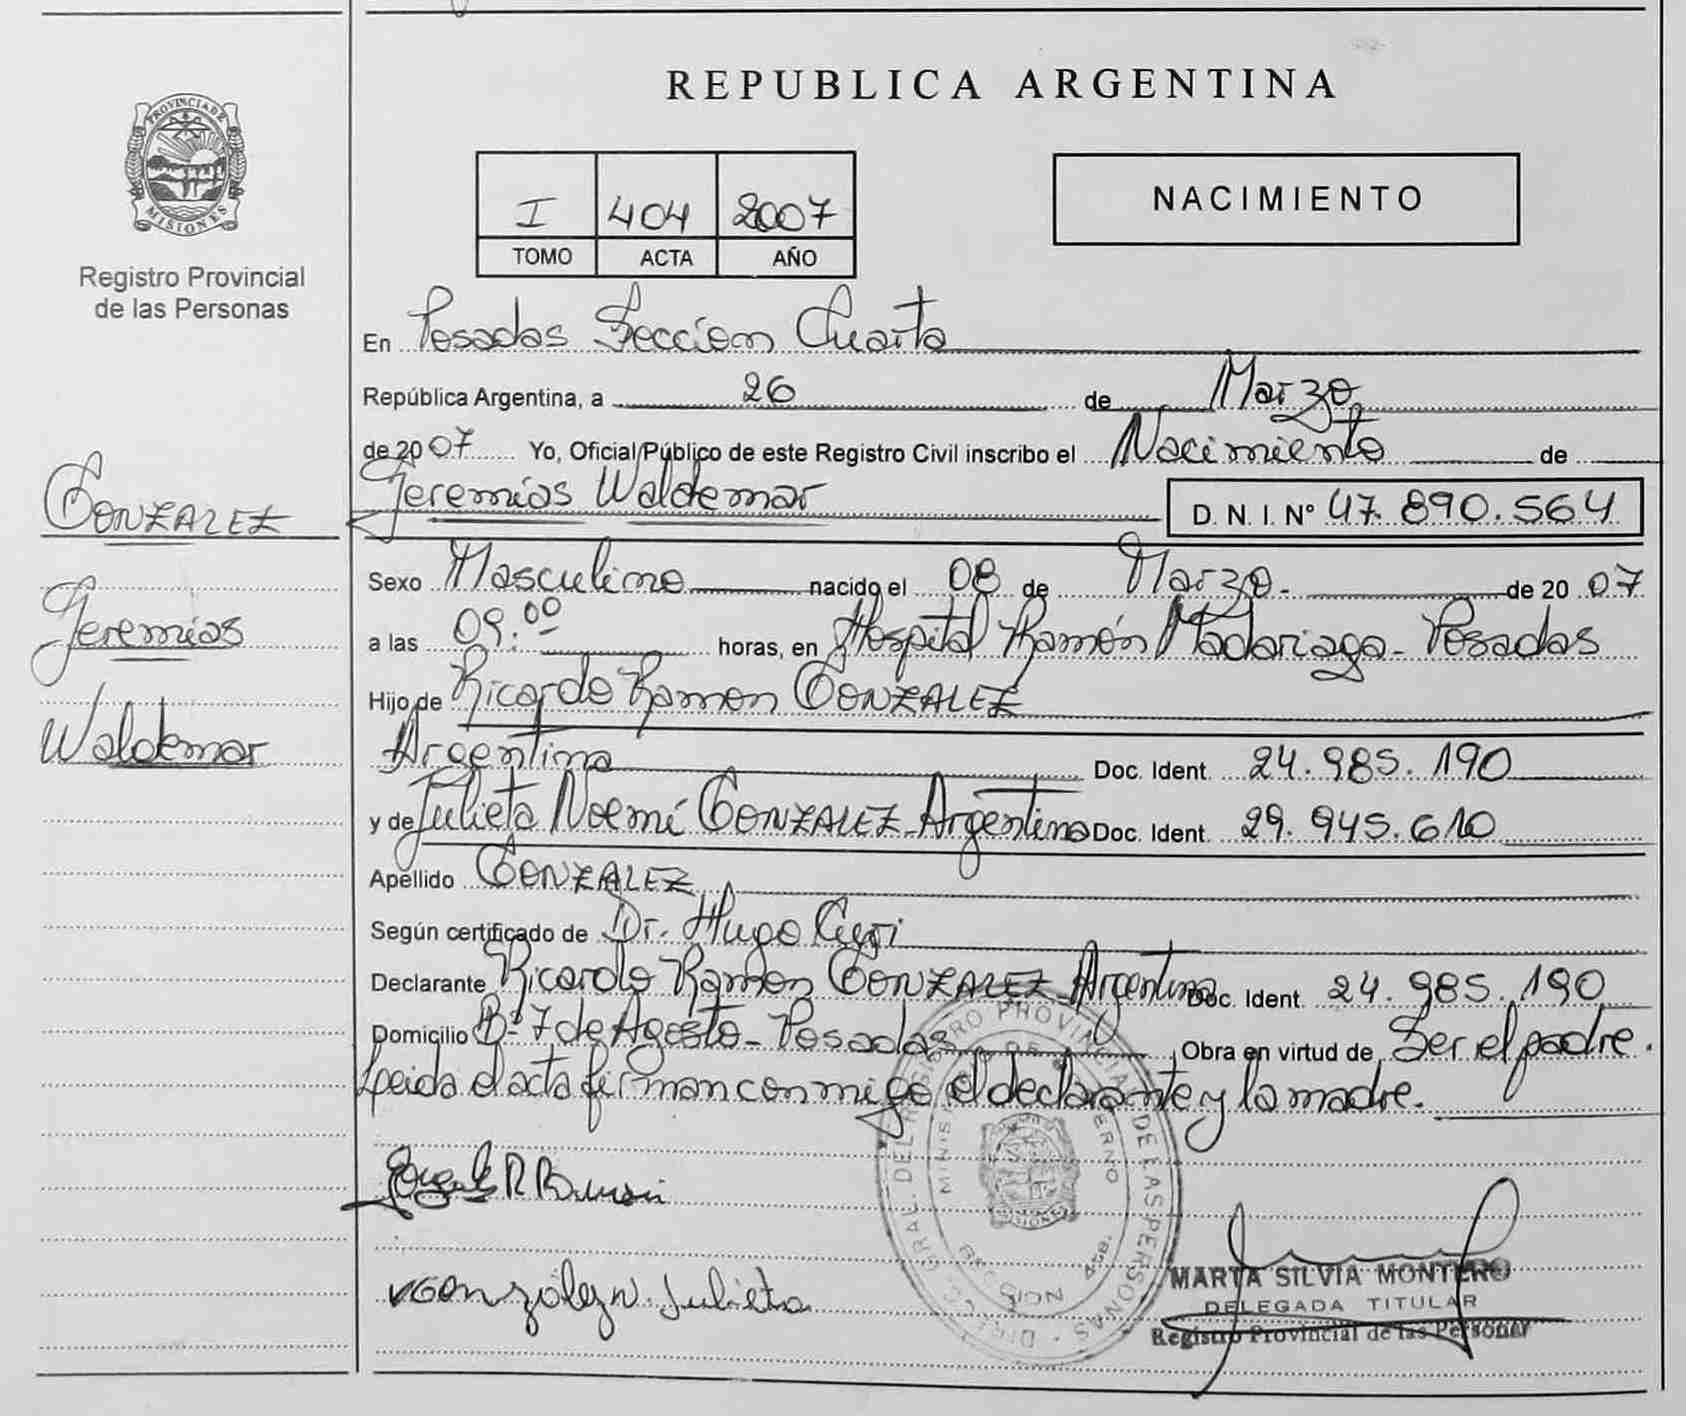 REPUBLICA ARGENTINA
PROVINCIA DE
MISIONES
Registro Provincial
de las Personas
I 404 2007
TOMO ACTA AÑO
NACIMIENTO
En Posadas Sección Cuarta
República Argentina, a 26 de Marzo
de 2007 Yo, Oficial Público de este Registro Civil inscribo el Nacimiento de
GONZALEZ
Jeremías
Waldemar
Jeremías Waldemar D. N. I. Nº 47.890.564
Sexo Masculino nacido el 08 de Marzo.- de 2007
a las 09.00 horas, en Hospital Ramón Madariaga - Posadas
Hijo de Ricardo Ramon GONZALEZ
Argentino Doc. Ident. 24.985.190
y de Julieta Noemí GONZALEZ - Argentina Doc. Ident. 29.945.610
Apellido GONZALEZ
Según certificado de Dr. Hugo
Declarante Ricardo Ramon GONZALEZ - Argentino Doc. Ident. 24.985.190
Domicilio Bº 7 de Agosto - Posadas Obra en virtud de Ser el padre.
Leida el acta firman conmigo el declarante y la madre.
R
Gonzalez N. Julieta
GRAL. DEL REGISTRO PROVINCIAL DE LAS PERSONAS
MARTA SILVIA MONTERO
DELEGADA TITULAR
Registro Provincial de las Personas